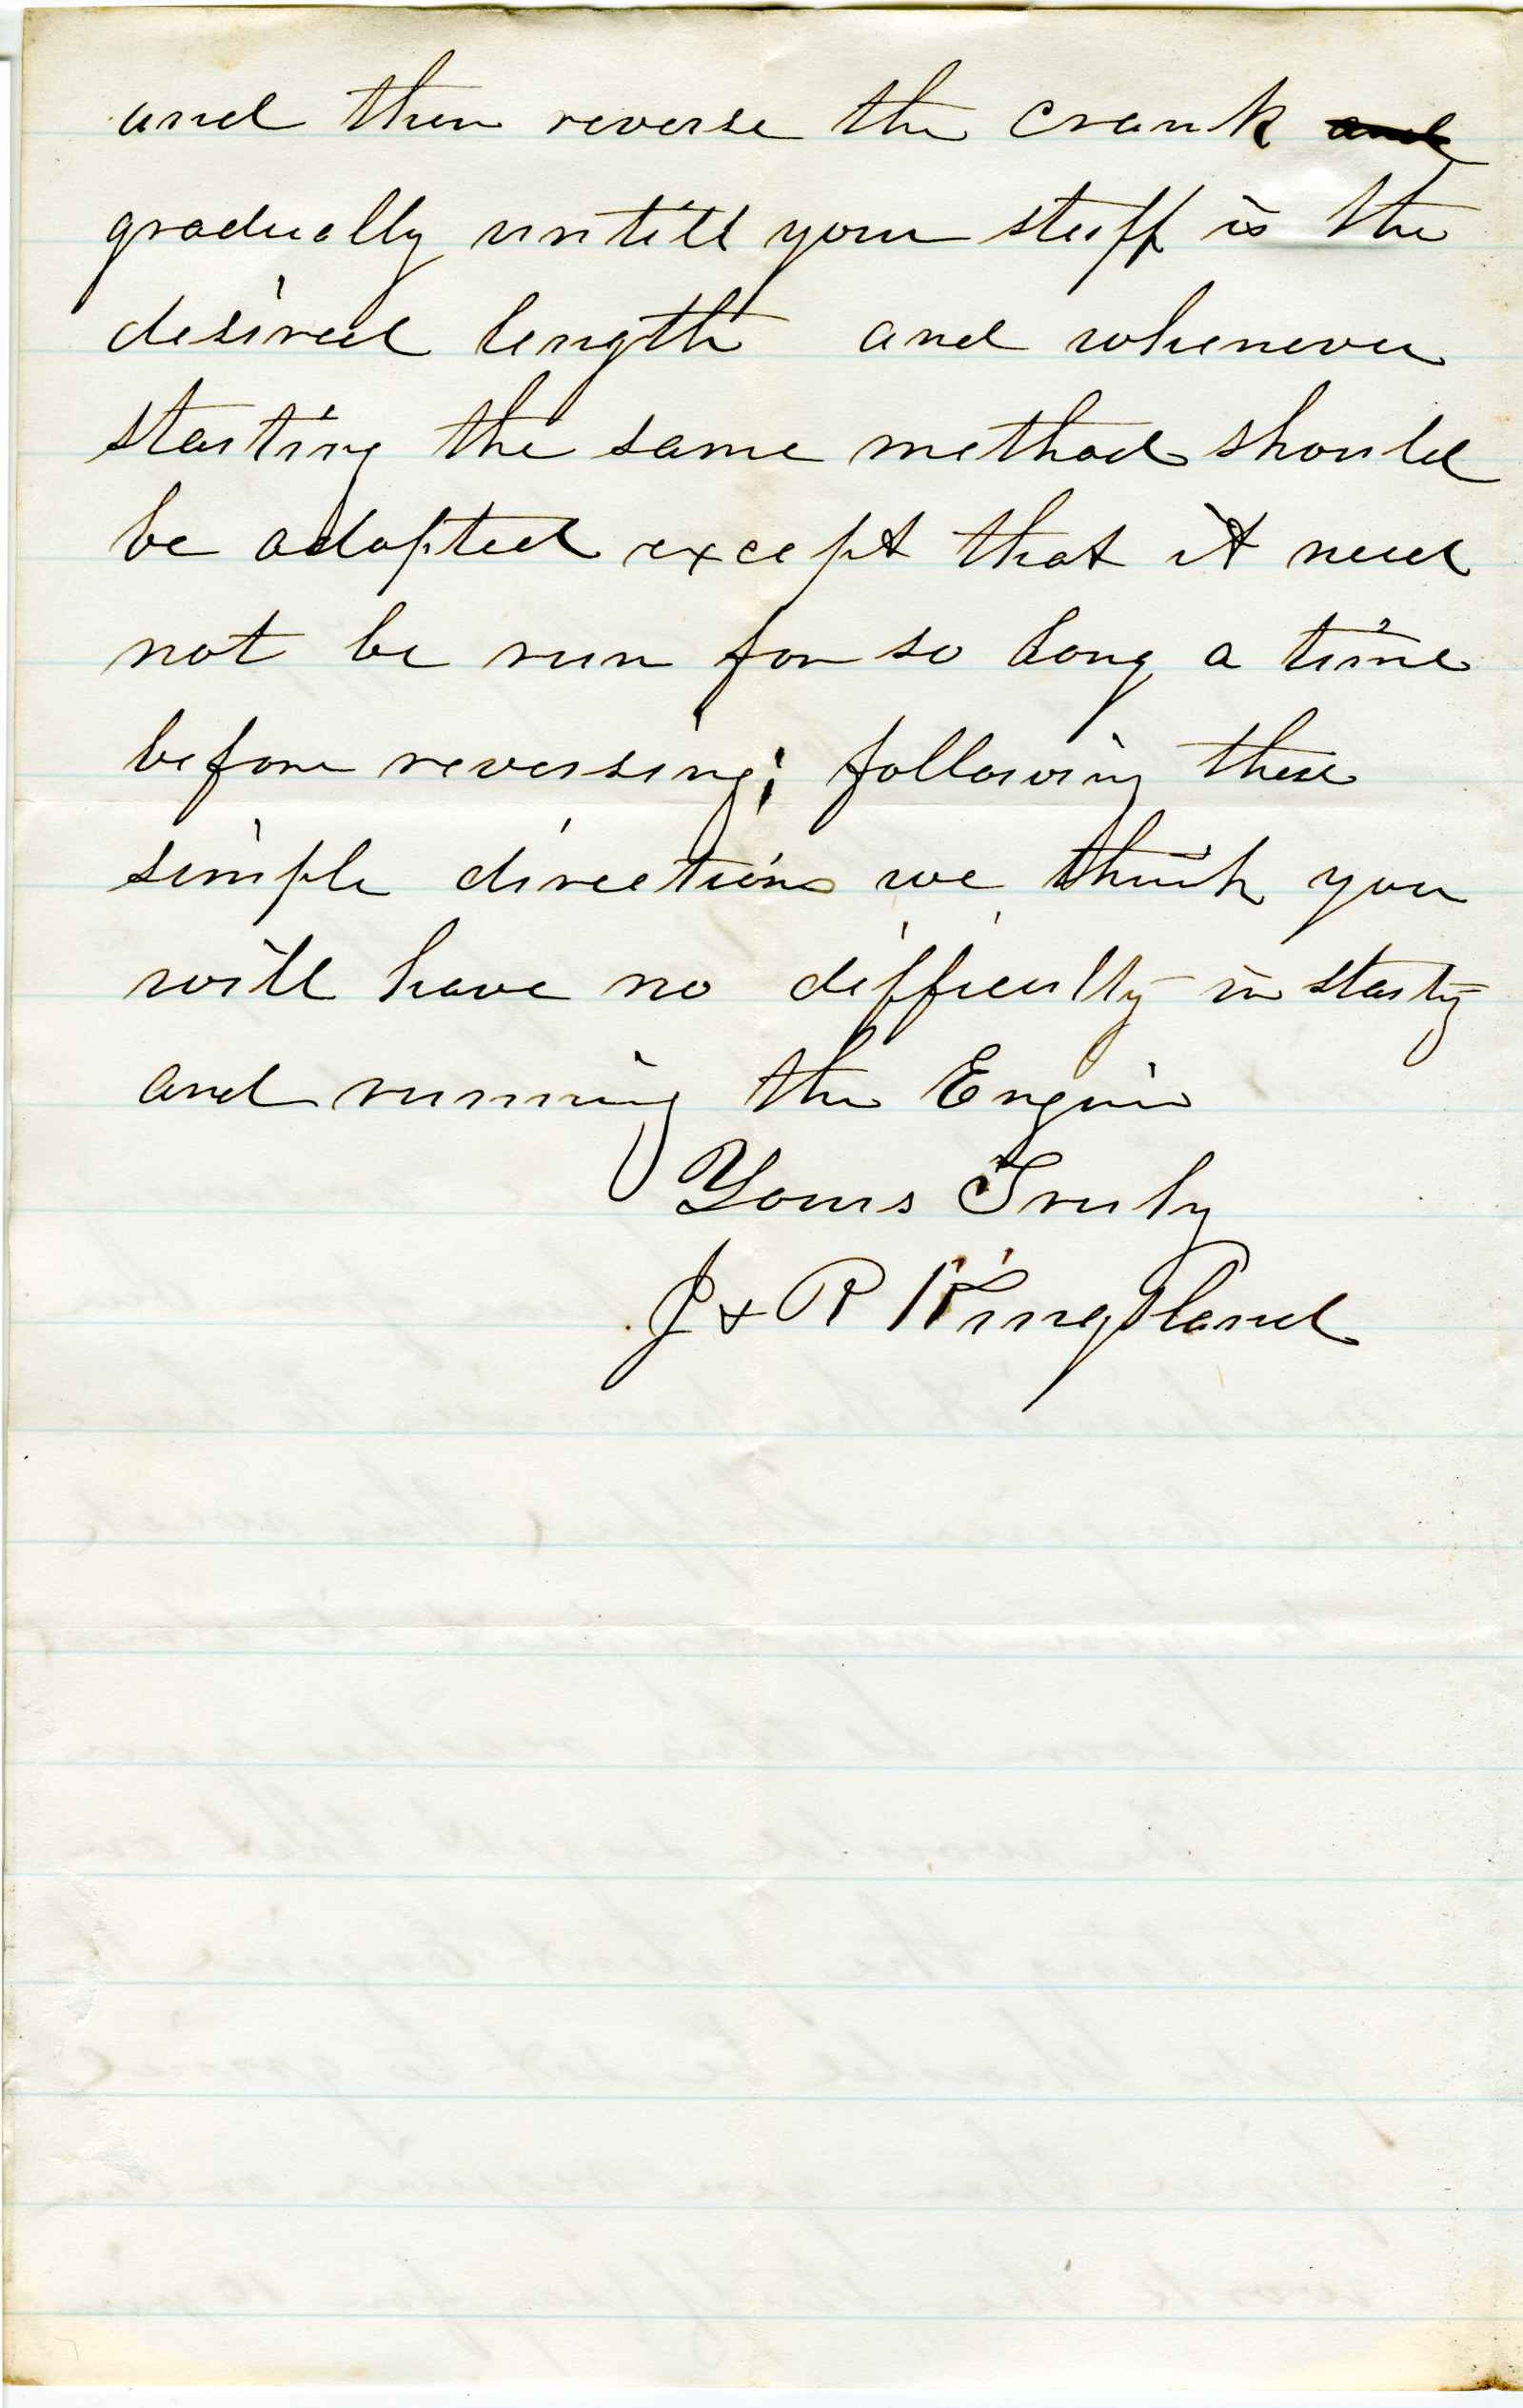 and then reverse the crank and
gradually untill your stuff is the
desired length and whenever
starting the same method should
be adopted except that it need
not be run for so long a time
before reversing; following these
simple directions we think you
will have no difficulty in startg
and running the Engine
Yours Truly
J & R Kingsland